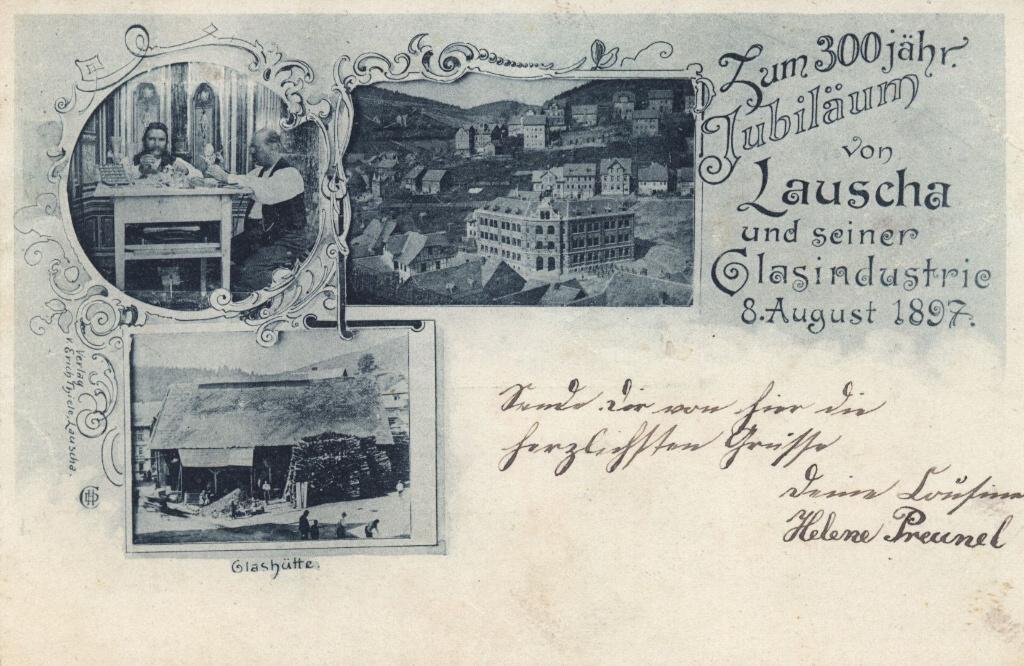 Zum 300jähr.
Jubiläum
von
Lauscha
und seiner
Glasindustrie
8. August 1897.
Verlag
v. Erich Thiele, Lauscha.
Glashütte.
Sende Dir von hier die
herzlichsten Grüsse
Deine Cousine
Helene Preunel